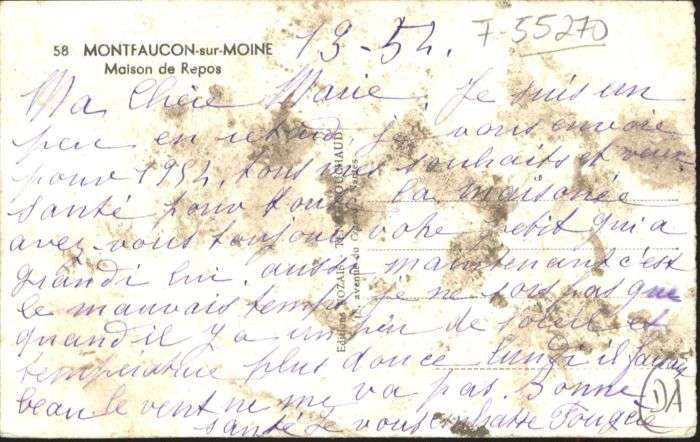 58 MONTFAUCON-sur-MOINE
Maison de Repos
13-54.
F-55270
Ma Chère Marie. Je suis un
peu en retard, je vous envoie
pour 1954. tous mes souhaits et vœux
santé pour toute la maisonée
avez-vous toujours votre petit qui a
grandi lui aussi maintenant c'est
le mauvais temps je ne sors pas que
quand il y a un peu de soleil et
température plus douce lundi il faisait
beau le vent ne me va pas. Bonne
santé Je vous embrasse
DA
Editions